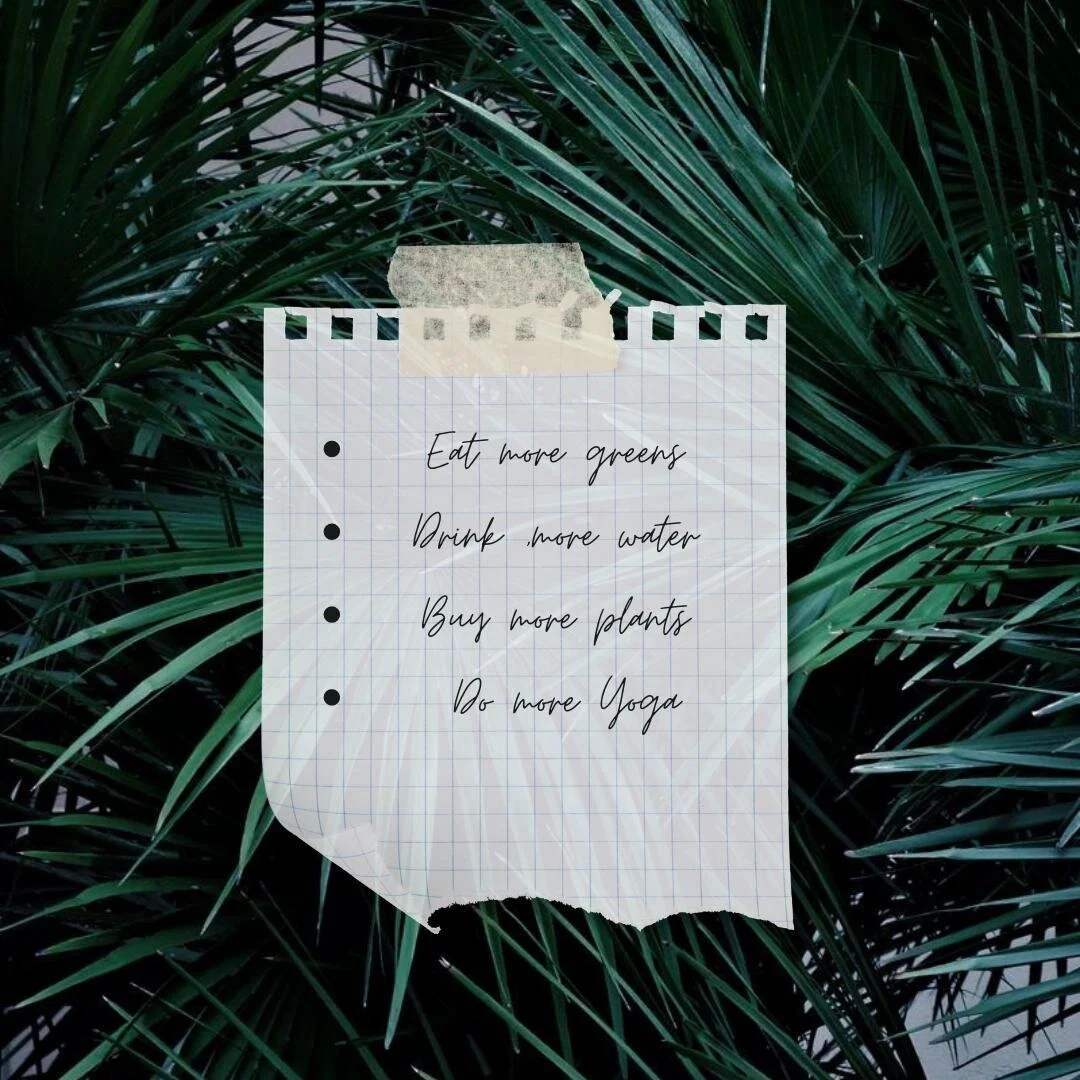 • Eat more greens
• Drink ,more water
• Buy more plants
• Do more Yoga